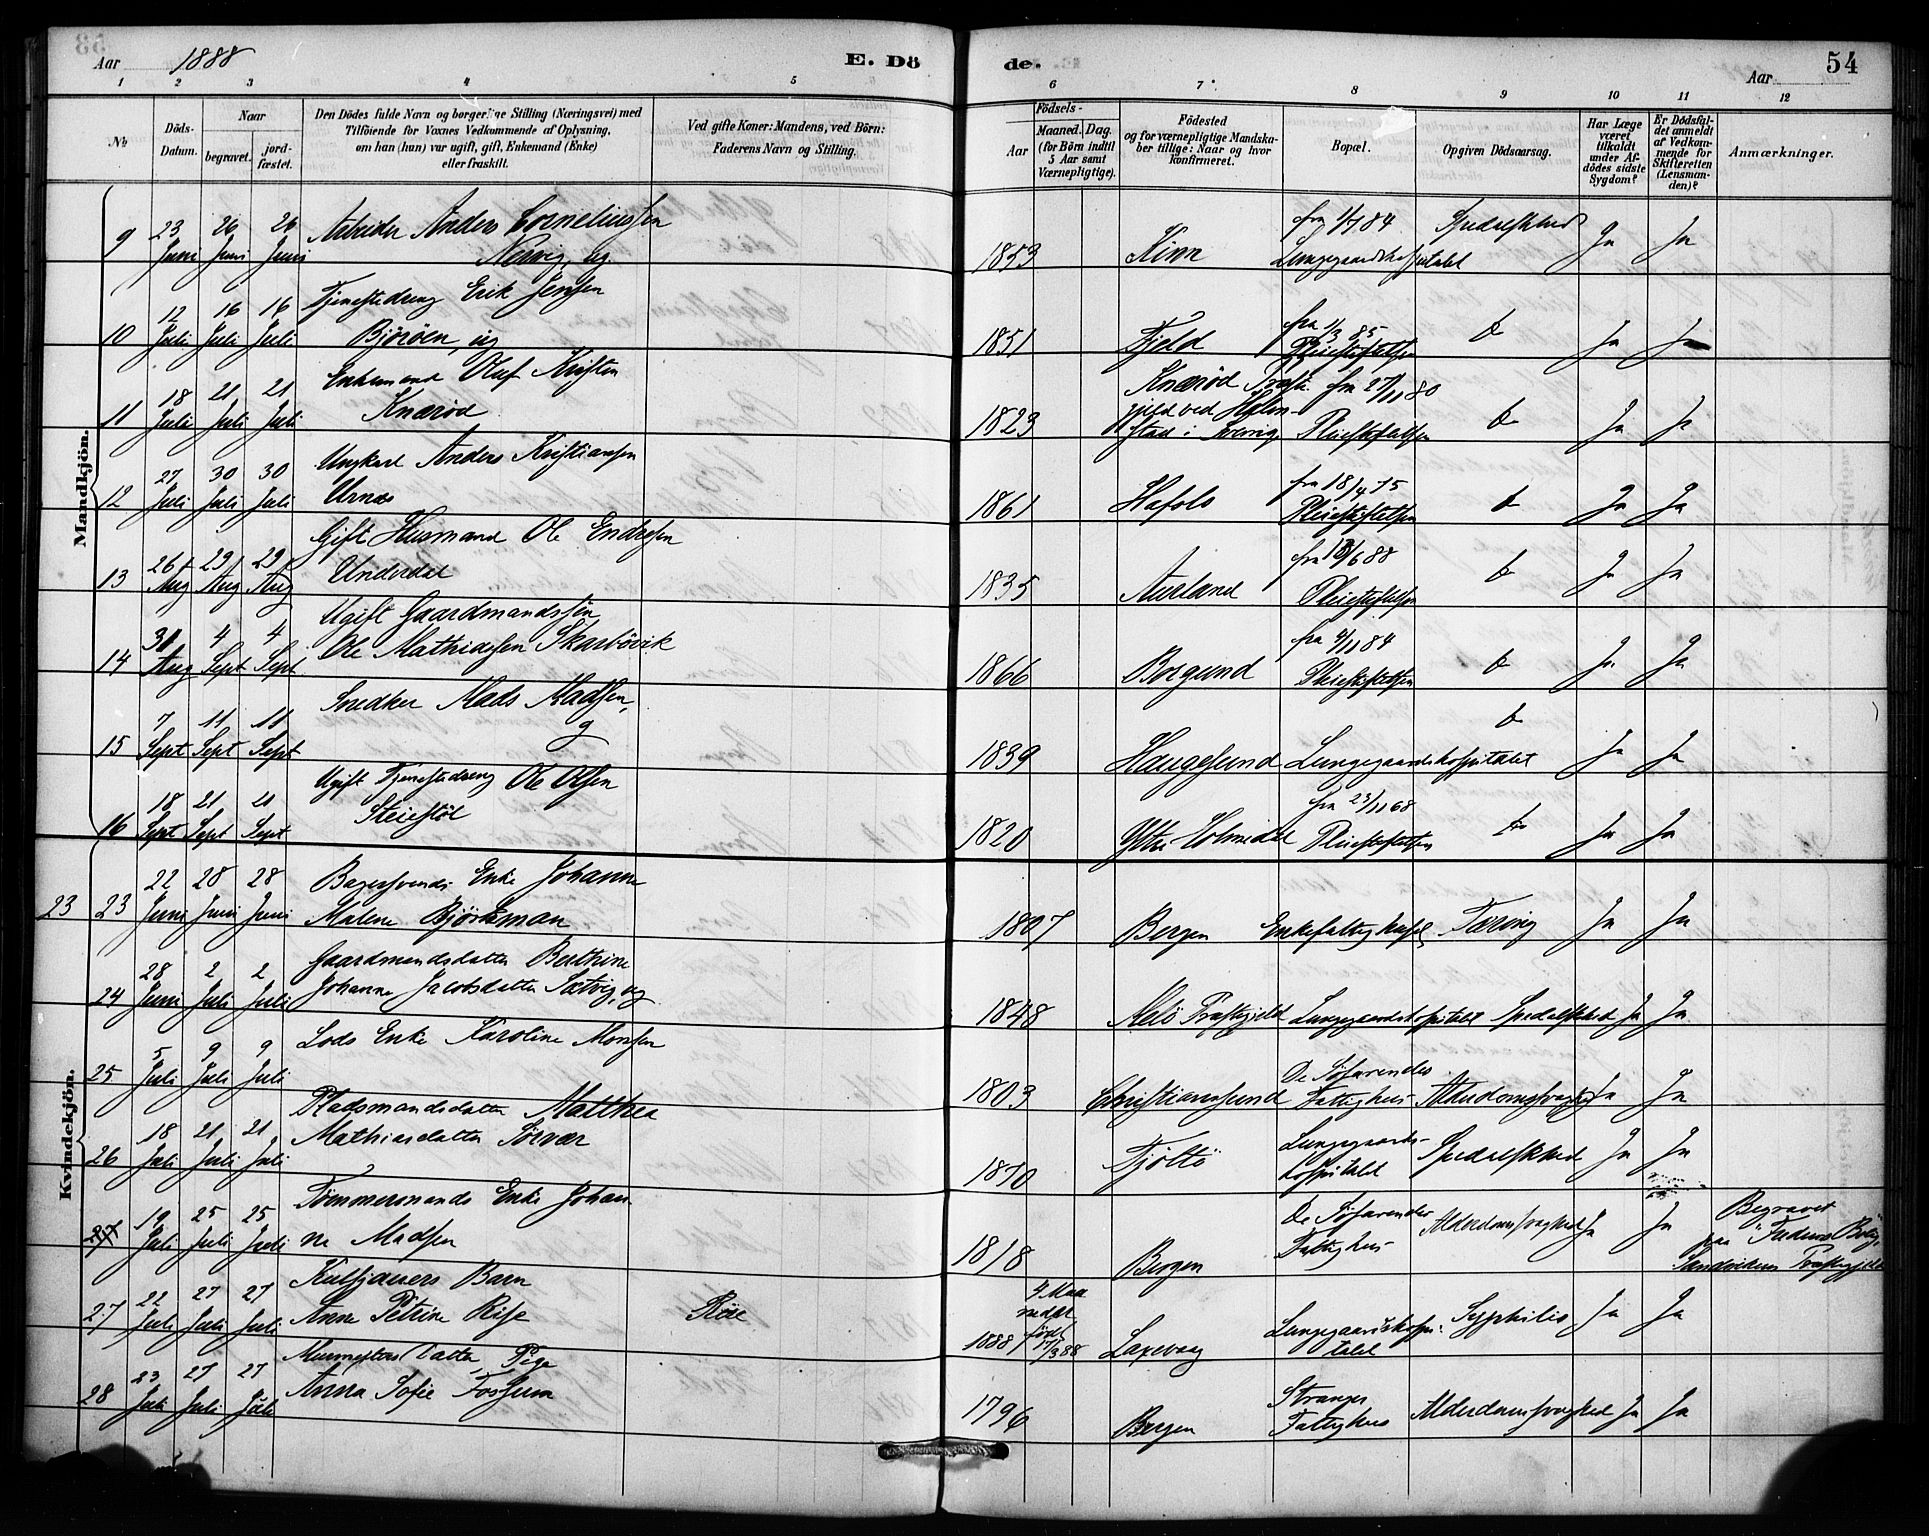 Aar 1888
E. Dö
de.
54
Aar
1 2 3 4 5 6 7 8 9 10 11 12
No
Döds-
Datum.
Naar
begravet. jord-
fæstet.
Den Dödes fulde Navn og borgerlige Stilling (Næringsvei) med
Tilföiende for Voxnes Vedkommende af Oplysning,
om han (hun) var ugift, gift, Enkemand (Enke)
eller fraskilt.
Ved gifte Koner: Mandens, ved Börn:
Faderens Navn og Stilling.
Födsels-
Aar
Maaned. Dag.
(for Börn indtil
5 Aar samt
Værnepligtige).
Födested
og for værnepligtige Mandska-
ber tillige: Naar og hvor
konfirmeret.
Bopæl.
Opgiven Dödsaarsag.
Har Læge
været
tilkaldt
under Af-
dödes sidste
Sygdom?
Er Dödsfal-
det anmeldt
af Vedkom-
mende for
Skifteretten
(Lensman-
den)?
Anmærkninger.
Mandkjön.
9 23 Juni 26 Juni 26 Juni Arbeider Anders Corneliussen
Nervig, ug 1853 Kinn fra 1/7 84 Lungegaardshospitalet Spedalskhed Ja Ja
10 12 Juli 16 Juli 16 Juli Tjenestedreng Erik Jensen
Björöen, ug 1851 Fjeld fra 1/3 85 Pleiestiftelsen do Ja Ja
11 18 Juli 21 Juli 21 Juli Enkemand Oluf Kristen
Knæröd 1823 Knæröd Præste-
gjeld ved Halm-
stad i Sverig fra 27/11 80 Pleiestiftelsen do Ja Ja
12 27 Juli 30 Juli 30 Juli Ungkarl Anders Kristiansen
Urnæs 1861 Hafslo fra 18/4 75 Pleiestiftelsen do Ja Ja
13 26 Aug 29 Aug 29 Aug Gift Husmand Ole Endresen
Underdal 1835 Aurland fra 13/6 88 Pleiestiftelsen do Ja Ja
14 31 Aug 4 Sept 4 Sept Ugift Gaardmandssön
Ole Mathiassen Skarbövik 1866 Borgund fra 4/11 84 Pleiestiftelsen do Ja Ja
15 7 Sept 11 Sept 11 Sept Snedker Mads Madsen,
g 1839 Haugesund Lungegaardshospitalet do Ja Ja
16 18 Sept 21 Sept 21 Sept Ugift Tjenestedreng Ole Olsen
Steiestöl 1820 Ytre Holmedal fra 23/11 68 Pleiestiftelsen do Ja Ja
Kvindekjön.
23 23 22 Juni 28 Juni 28 Juni Bagersvends Enke Johanne
Malene Björkman 1807 Bergen Enkefattighuset Tæring Ja Ja
24 28 Juni 2 Juli 2 Juli Gaardmandsdatter Berthine
Johanne Jacobsdatter Sætvig, ug 1848 Melö Præstegjeld Lungegaardshospitalet Spedalskhed Ja Ja
25 5 Juli 9 Juli 9 Juli Lods Enke Karoline Monsen
1803 Christiansund De Söfarendes
Fattighus Alderdomssvaghed Ja Ja
26 18 Juli 21 Juli 21 Juli Pladsmandsdatter Matthea
Mathiasdatter Sörvær 1870 Tjöttö Lungegaards-
hospitalet Spedalskhed Ja Ja
27 19 Juli 25 Juli 25 Juli Tömmermands Enke Johan
ne Madsen 1818 Bergen De Söfarendes
Fattighus Alderdomssvaghed Ja Ja Begravet
paa "Fredens Bolig"
Sandvikens Præstegjeld
27 22 Juli 27 Juli 27 Juli Kulsjauers Barn
Anne Petrine Röise Röse 1888 4 Maa
neder,
född
17/3 88 Laxevaag Lungegaardshospi-
talet Syphilis Ja Ja
28 23 Juli 27 Juli 27 Juli Murmesters Datter Pige
Anna Sofie Fossum 1796 Bergen Stranges
Fattighus Alderdomssvaghed Ja Ja